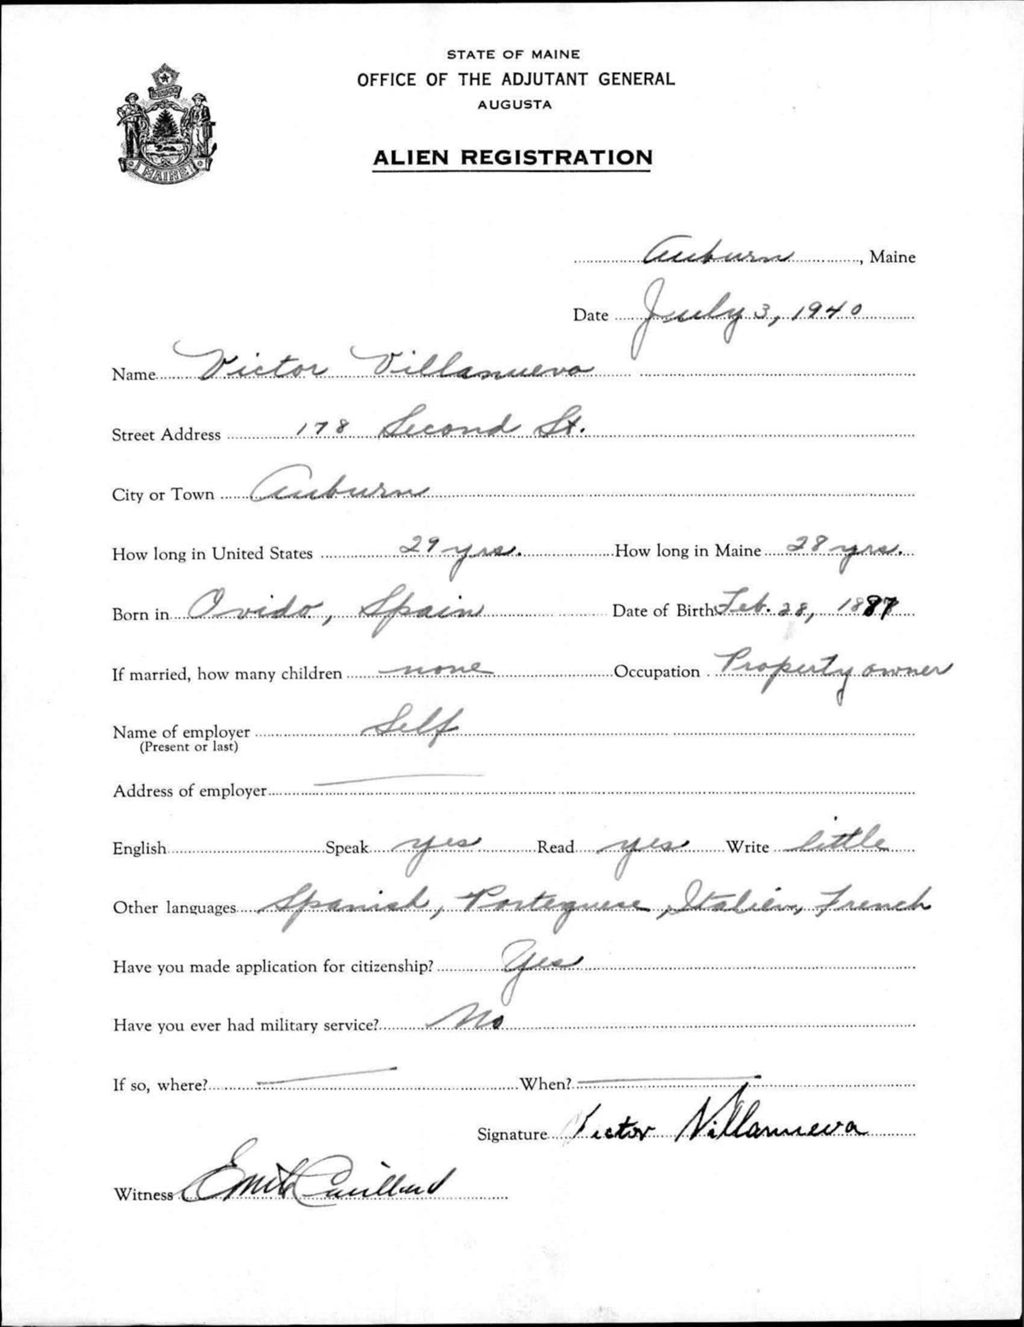 STATE OF MAINE
OFFICE OF THE ADJUTANT GENERAL
AUGUSTA
ALIEN REGISTRATION
MAINE
Auburn, Maine
Date July 3, 1940
Name Victor Villanueva
Street Address 178 Second St.
City or Town Auburn
How long in United States 29 yrs. How long in Maine 28 yrs.
Born in Ovido, Spain Date of Birth Feb. 28, 1887
If married, how many children none Occupation Property owner
Name of employer Self
(Present or last)
Address of employer
English Speak yes Read yes Write little
Other languages Spanish, Porteguese, Italien, French
Have you made application for citizenship? Yes
Have you ever had military service? No
If so, where? When?
Signature Victor Villanueva
Witness